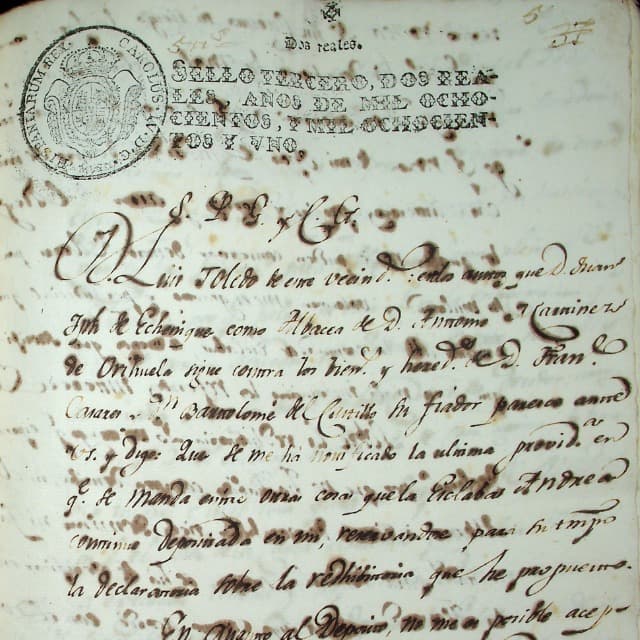 Dos reales.
SELLO TERCERO, DOS REA-
LES, AÑOS DE MIL OCHO-
CIENTOS, Y MIL OCHOCIEN-
TOS Y UNO.
S. P. G. y C. G.
D. Luis Toledo de este vecind.º en los autos que D. Juan
Jph de Echenique como Albacea de D. Antonio
de Orihuela sigue contra los bien.s y hered.s de D. Fran.co
Casares y D.n Bartolomé del Castillo su fiador paresco ante
VS. y digo: Que se me ha notificado la ultima provid.a en
q.e se manda entre otras cosas que la Esclaba Andrea
continue depositada en mi, reservandose para su tmpo
la declaratoria sobre la redhibitoria que he propuesto.
En quanto al Deposito, no me es posible acep-